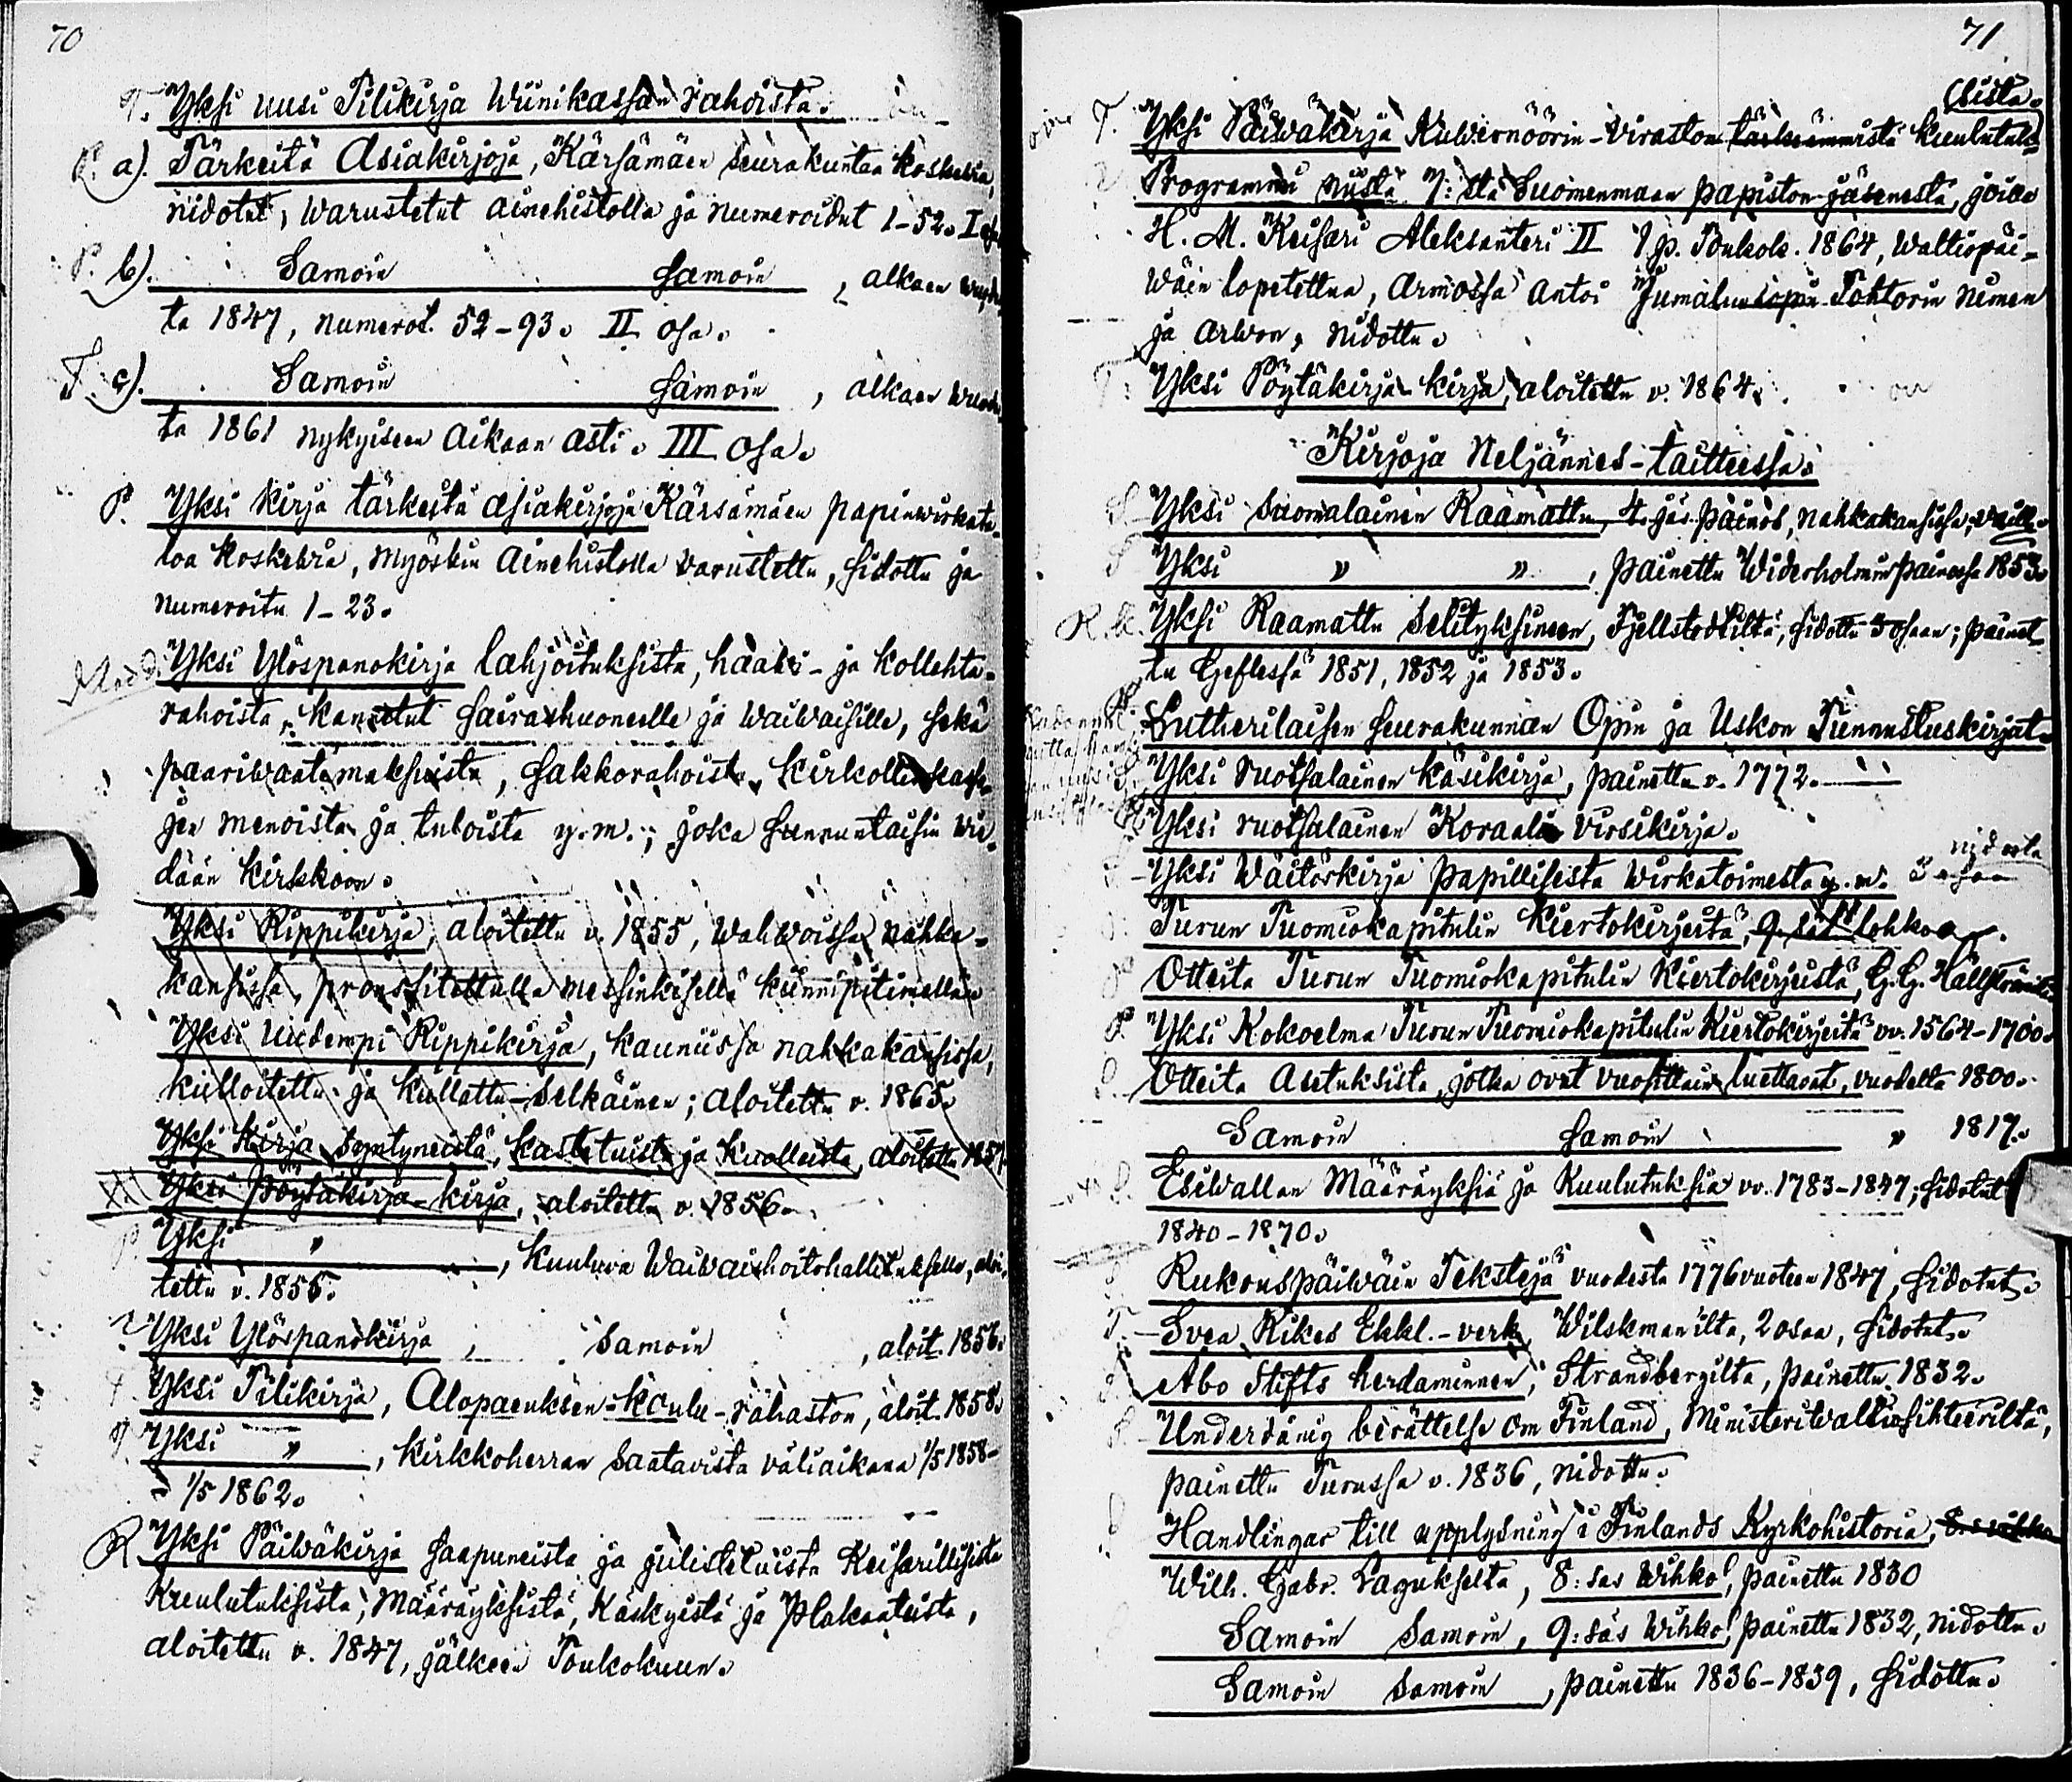 70
T. Yksi uusi Tilikirja Wiinikassan rahoista.
P. a). Tärkeitä Asiakirjoja, Kärsämäen seurakuntaa koskevia,
nidotut, warustetut ainehistolla ja numeroidut 1-52. I osa
P. b). Samoin Samoin, alkaen wuodes
ta 1847, numerot. 52-93. II osa.
T. c). Samoin Samoin, alkaen wuodes
ta 1861 nykyiseen aikaan asti. III osa.
P. Yksi kirja tärkeitä asiakirjoja Kärsämäen papinwirkata-
loa koskevia, myöskin ainehistolla varustettu, sidottu ja
numeroitu 1-23.
Yksi Ylöspanokirja lahjoituksista, haaksi- ja kollehta-
rahoista, kannetut sairashuoneelle ja waiwaisille, sekä
paariwaatemaksuista, sakkorahoista, kirkollis kassa-
jen menoista ja tuloista y.m.; joka sunnuntaisin wie-
dään kirkkoon.
Yksi Rippikirja, aloitettu v. 1855, wahwoissa nahka-
kansissa, pronssitettulla messinkisellä kiinnipitimellä.
Yksi uudempi Rippikirja, kauniissa nahkakansissa,
killoitettu ja kullattu-selkäinen; aloitettu v. 1865.
Yksi Kirja syntyneistä, kastetuista ja kuolleista, aloitettu 1857.
Yksi Pöytäkirja-kirja, aloitettu v. 1856.
P. Yksi „, kuuluva Waiwaishoitohallitukselle, aloi-
tettu v. 1856.
Yksi Ylöspanokirja, Samoin, aloit. 1856.
T. Yksi Tilikirja, Alopaeuksen-koulu-rahaston, aloit. 1858.
T. Yksi „, Kirkkoherran saatavista väliaikana 1/5 1858-
1/5 1862.
R Yksi Päiwäkirja saapuneista ja julistetuista Keisarillisista
Kuulutuksista, Määräyksistä, Käskyistä ja Plakaateista,
aloitettu v. 1847, jälkeen Toukokuun.
71
(sista.
T. Yksi Päiwäkirja Kuwernöörin-viraston tärkeimmistä kuulutuk-
Programmi niistä 7:stä Suomenmaan papiston jäsenestä, joille
H. M. Keisari Aleksanteri II 1 p. Toukok. 1864, Waltiopäi-
wäin lopetettua, armossa antoi Jumaluusopin Tohtorin nimen
ja arwon, nidottu.
T: Yksi Pöytäkirja-kirja, aloitettu v. 1864.
Kirjoja Neljännes-taitteessa.
Yksi suomalainen Raamattu, 4. jäs. painos, nahkakansissa,
Yksi „ „, painettu Widerholmin painossa 1853.
R.K. Yksi Raamattu selityksineen, Fjellstedtiltä, sidottu 3 osaan; painet-
tu Geflessä 1851, 1852 ja 1853.
Lutherilaisen seurakunnan Opin ja Uskon Tunnustuskirjat.
Yksi ruotsalainen käsikirja, painettu v. 1772.
Yksi ruotsalainen Koraali virsikirja.
Yksi Wäitöskirja papillisesta wirkatoimesta y.m.
Turun Tuomiokapitulin Kiertokirjeitä, 9. lohkoa.
Otteita Turun Tuomiokapitulin Kiertokirjeistä, G.G. Hällströmiltä
P. Yksi Kokoelma Turun Tuomiokapitulin Kiertokirjeitä vv. 1564-1700.
Otteita Asetuksista, jotka ovat vuosittain luettavat, vuodelta 1800.
Samoin Samoin „ 1817.
Esiwallan Määräyksiä ja Kuulutuksia vv. 1783-1847; sidotut
1840-1870.
Rukouspäiwäin Tekstejä vuodesta 1776 vuoteen 1847, sidotut.
T. Svea Rikes Ekkl.-verk, Wilskmanilta, 2 osaa, sidotut.
Abo Stifts herdaminnen, Strandbergilta, painettu 1832.
Underdånig berättelse om Finland, Ministeriwaltiosihteeriltä,
painettu Turussa v. 1836, nidottu.
Handlingar till upplysning i Finlands Kyrkohistoria,
Wilh. Gabr. Lagukselta, 8:sas Wihko, painettu 1830
Samoin Samoin, 9:säs Wihko, painettu 1832, nidottu.
Samoin Samoin, painettu 1836-1839, sidottu.